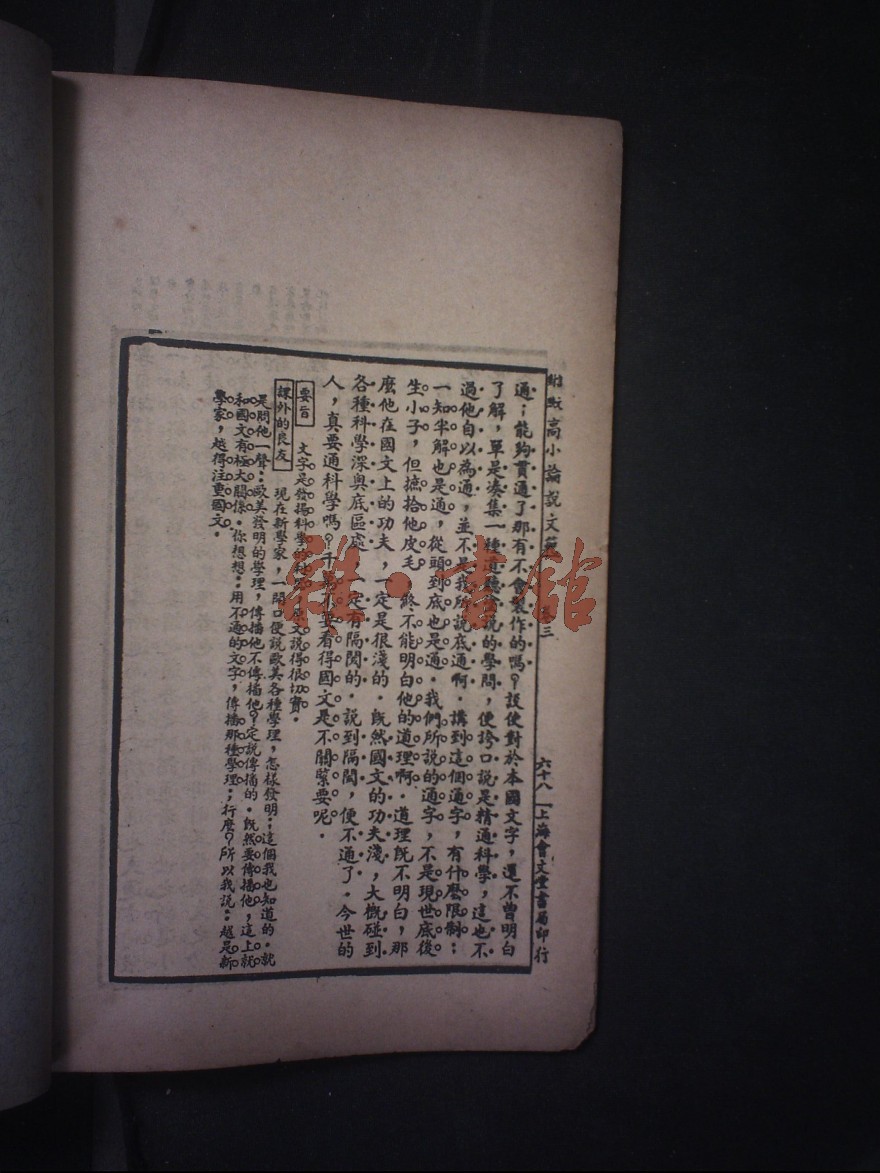 高小論說文範 卷三 六十八 上海會文堂書局印行
通；能夠貫通了那有不會製作的嗎？設使對於本國文字，還不曾明白
了解，單是湊集一種道聽塗說的學問，便誇口說是精通科學，這也不
過他自以為通，並不是我所說底通啊．講到這個通字，有什麼限制；
一知半解也是通，從頭到底也是通．我們所說的通字，不是現世底後
生小子，但摭拾他皮毛，終不能明白他的道理啊．道理既不明白，那
麼他在國文上的功夫，一定是很淺的．既然國文的功夫淺，大概碰到
各種科學深奧底區處，一定有隔閡的．說到隔閡，便不通了．今世的
人，真要通科學嗎？千萬不要看得國文是不關緊要呢．
要旨 文字是發揚科學的利器，原文說得很切實．
課外的良友 現在新學家，一開口便說歐美各種學理，怎樣發明；這個我也知道的．就
是問他一聲：歐美發明的學理，傳播他不傳播他？定說傳播的．既然要傳播他，這上就
和國文有極大關係．你想想：用不通的文字，傳播那種學理；行麼？所以我說：越是新
學家，越得注重國文．
雜·書館